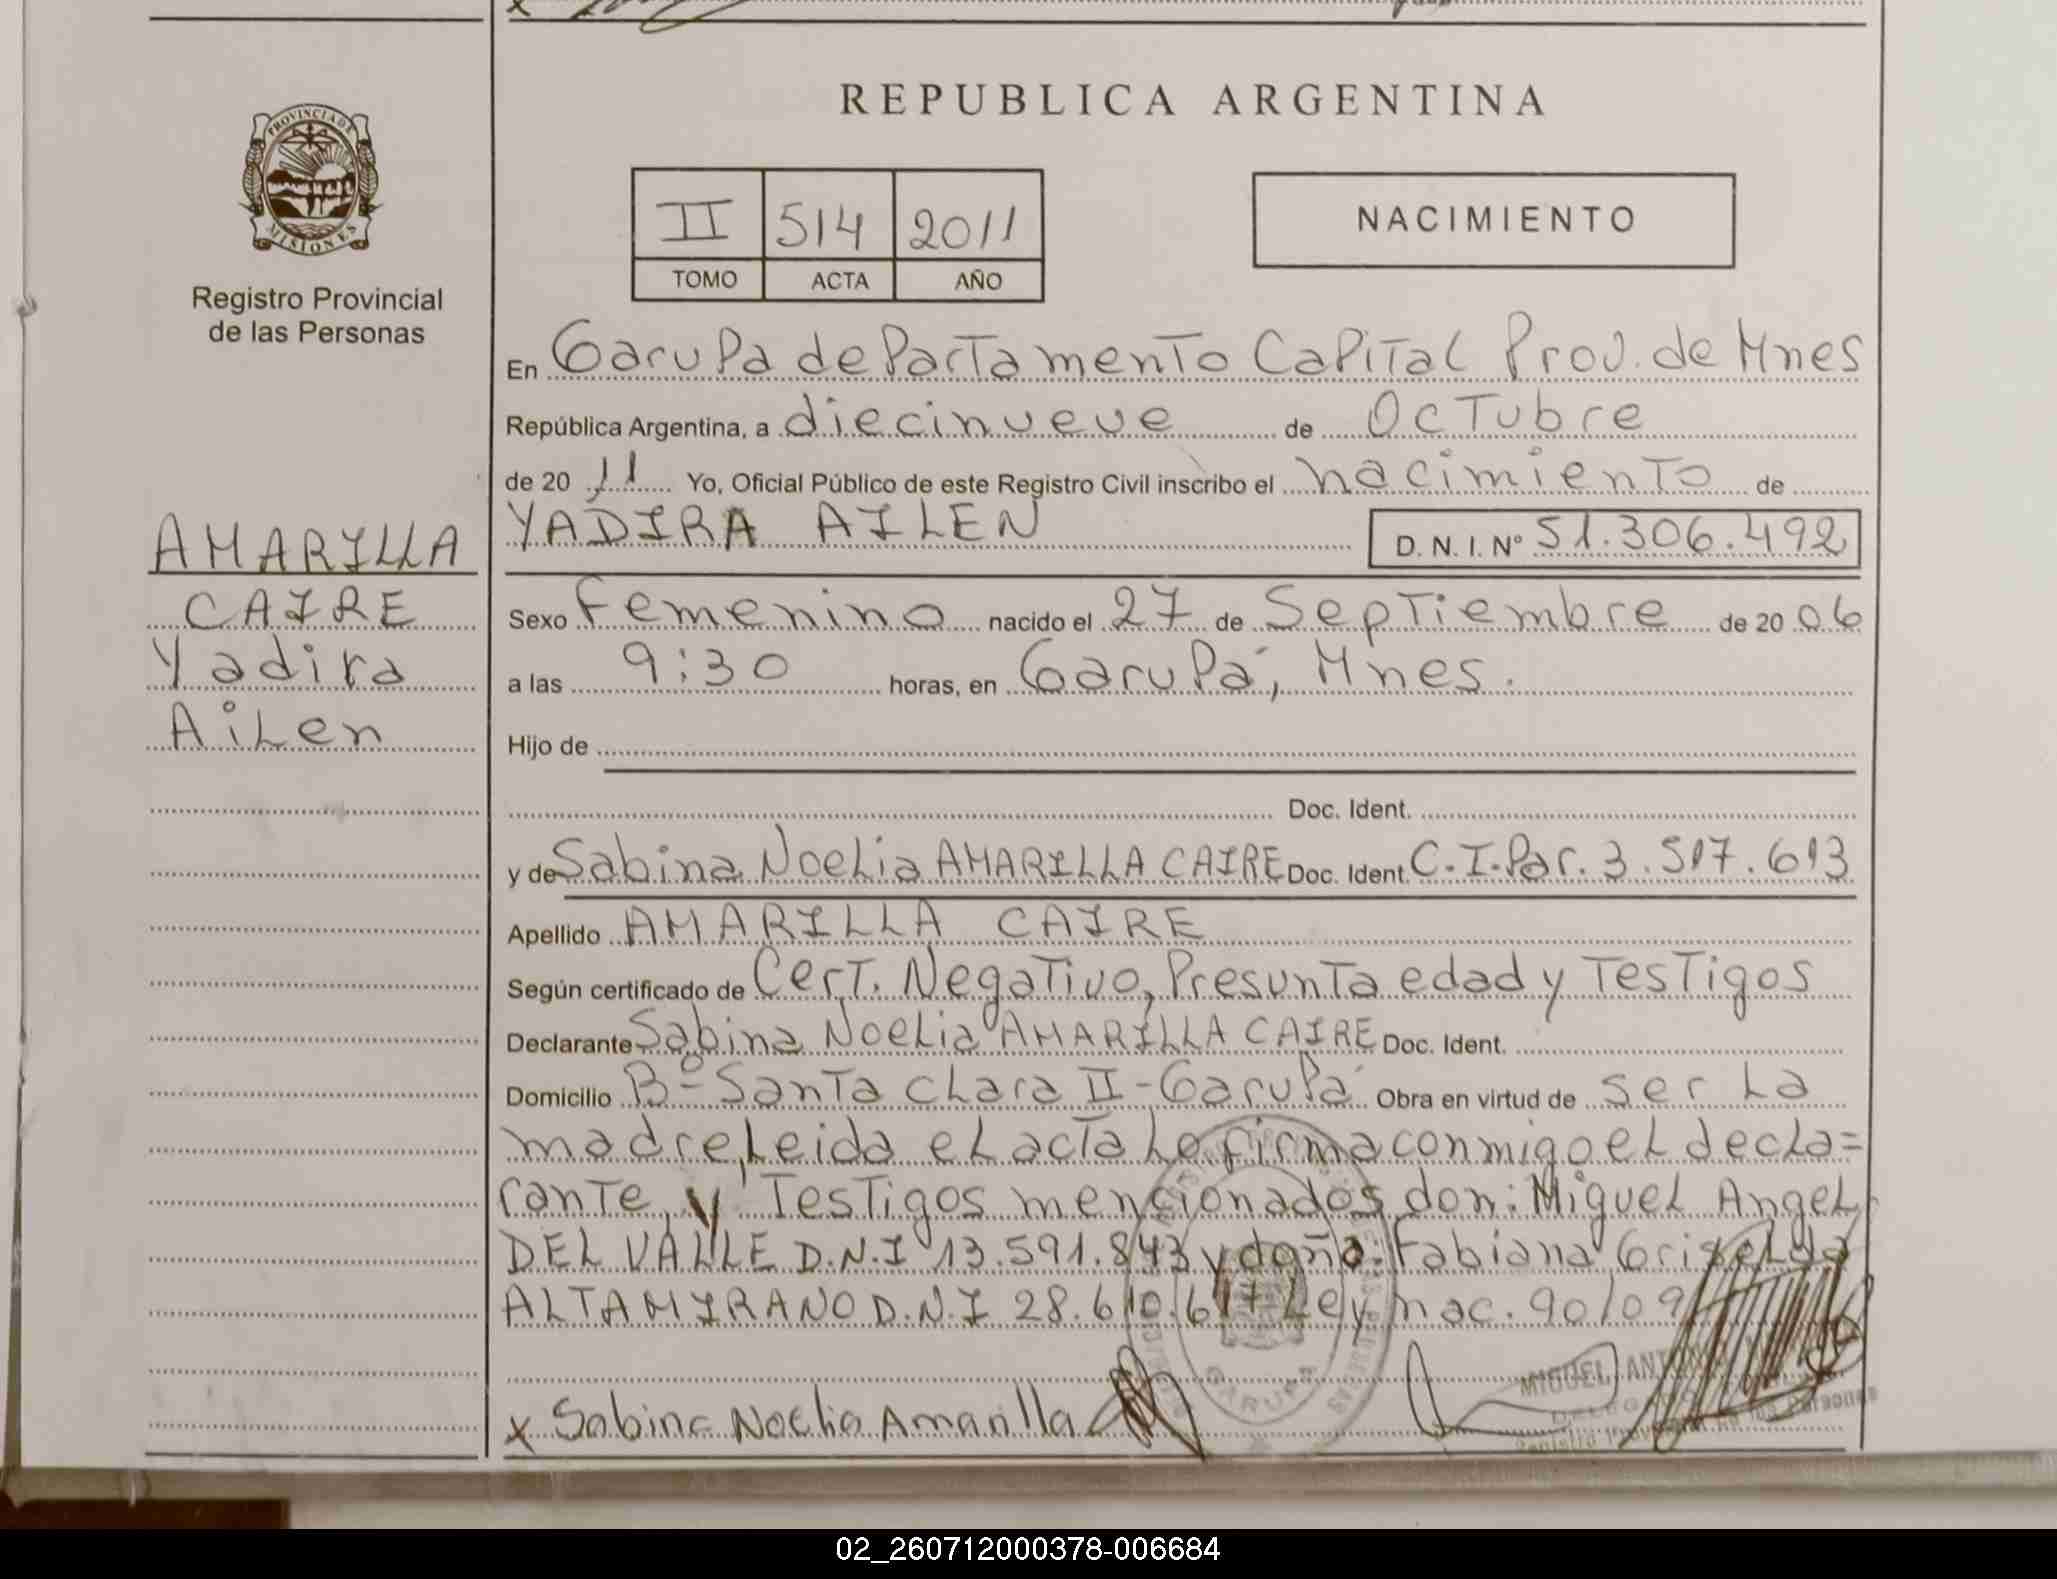 REPUBLICA ARGENTINA
PROVINCIA DE
MISIONES
Registro Provincial
de las Personas
II 514 2011
TOMO ACTA AÑO
NACIMIENTO
En Garupa departamento Capital Prov. de Mnes
República Argentina, a diecinueve de Octubre
de 20 11 Yo, Oficial Público de este Registro Civil inscribo el nacimiento de
YADIRA AILEN D. N. I. Nº 51.306.492
AMARILLA
CAIRE
Yadira
Ailen
Sexo Femenino nacido el 27 de Septiembre de 20 06
a las 9:30 horas, en Garupá, Mnes.
Hijo de
Doc. Ident.
y de Sabina Noelia AMARILLA CAIRE Doc. Ident. C.I.Par. 3.517.613
Apellido AMARILLA CAIRE
Según certificado de Cert. Negativo, Presunta edad y Testigos
Declarante Sabina Noelia AMARILLA CAIRE Doc. Ident.
Domicilio Bº Santa Clara II - Garupá Obra en virtud de ser la
madre, Leida el acta la firma conmigo el decla=
rante, y Testigos mencionados don: Miguel Angel
DEL VALLE D.N.I 13.591.843 y doña: Fabiana Griselda
ALTAMIRANO D.N.I 28.610.617 Ley nac. 90/09
x Sabina Noelia Amarilla
GARUPA
MIGUEL
02_260712000378-006684